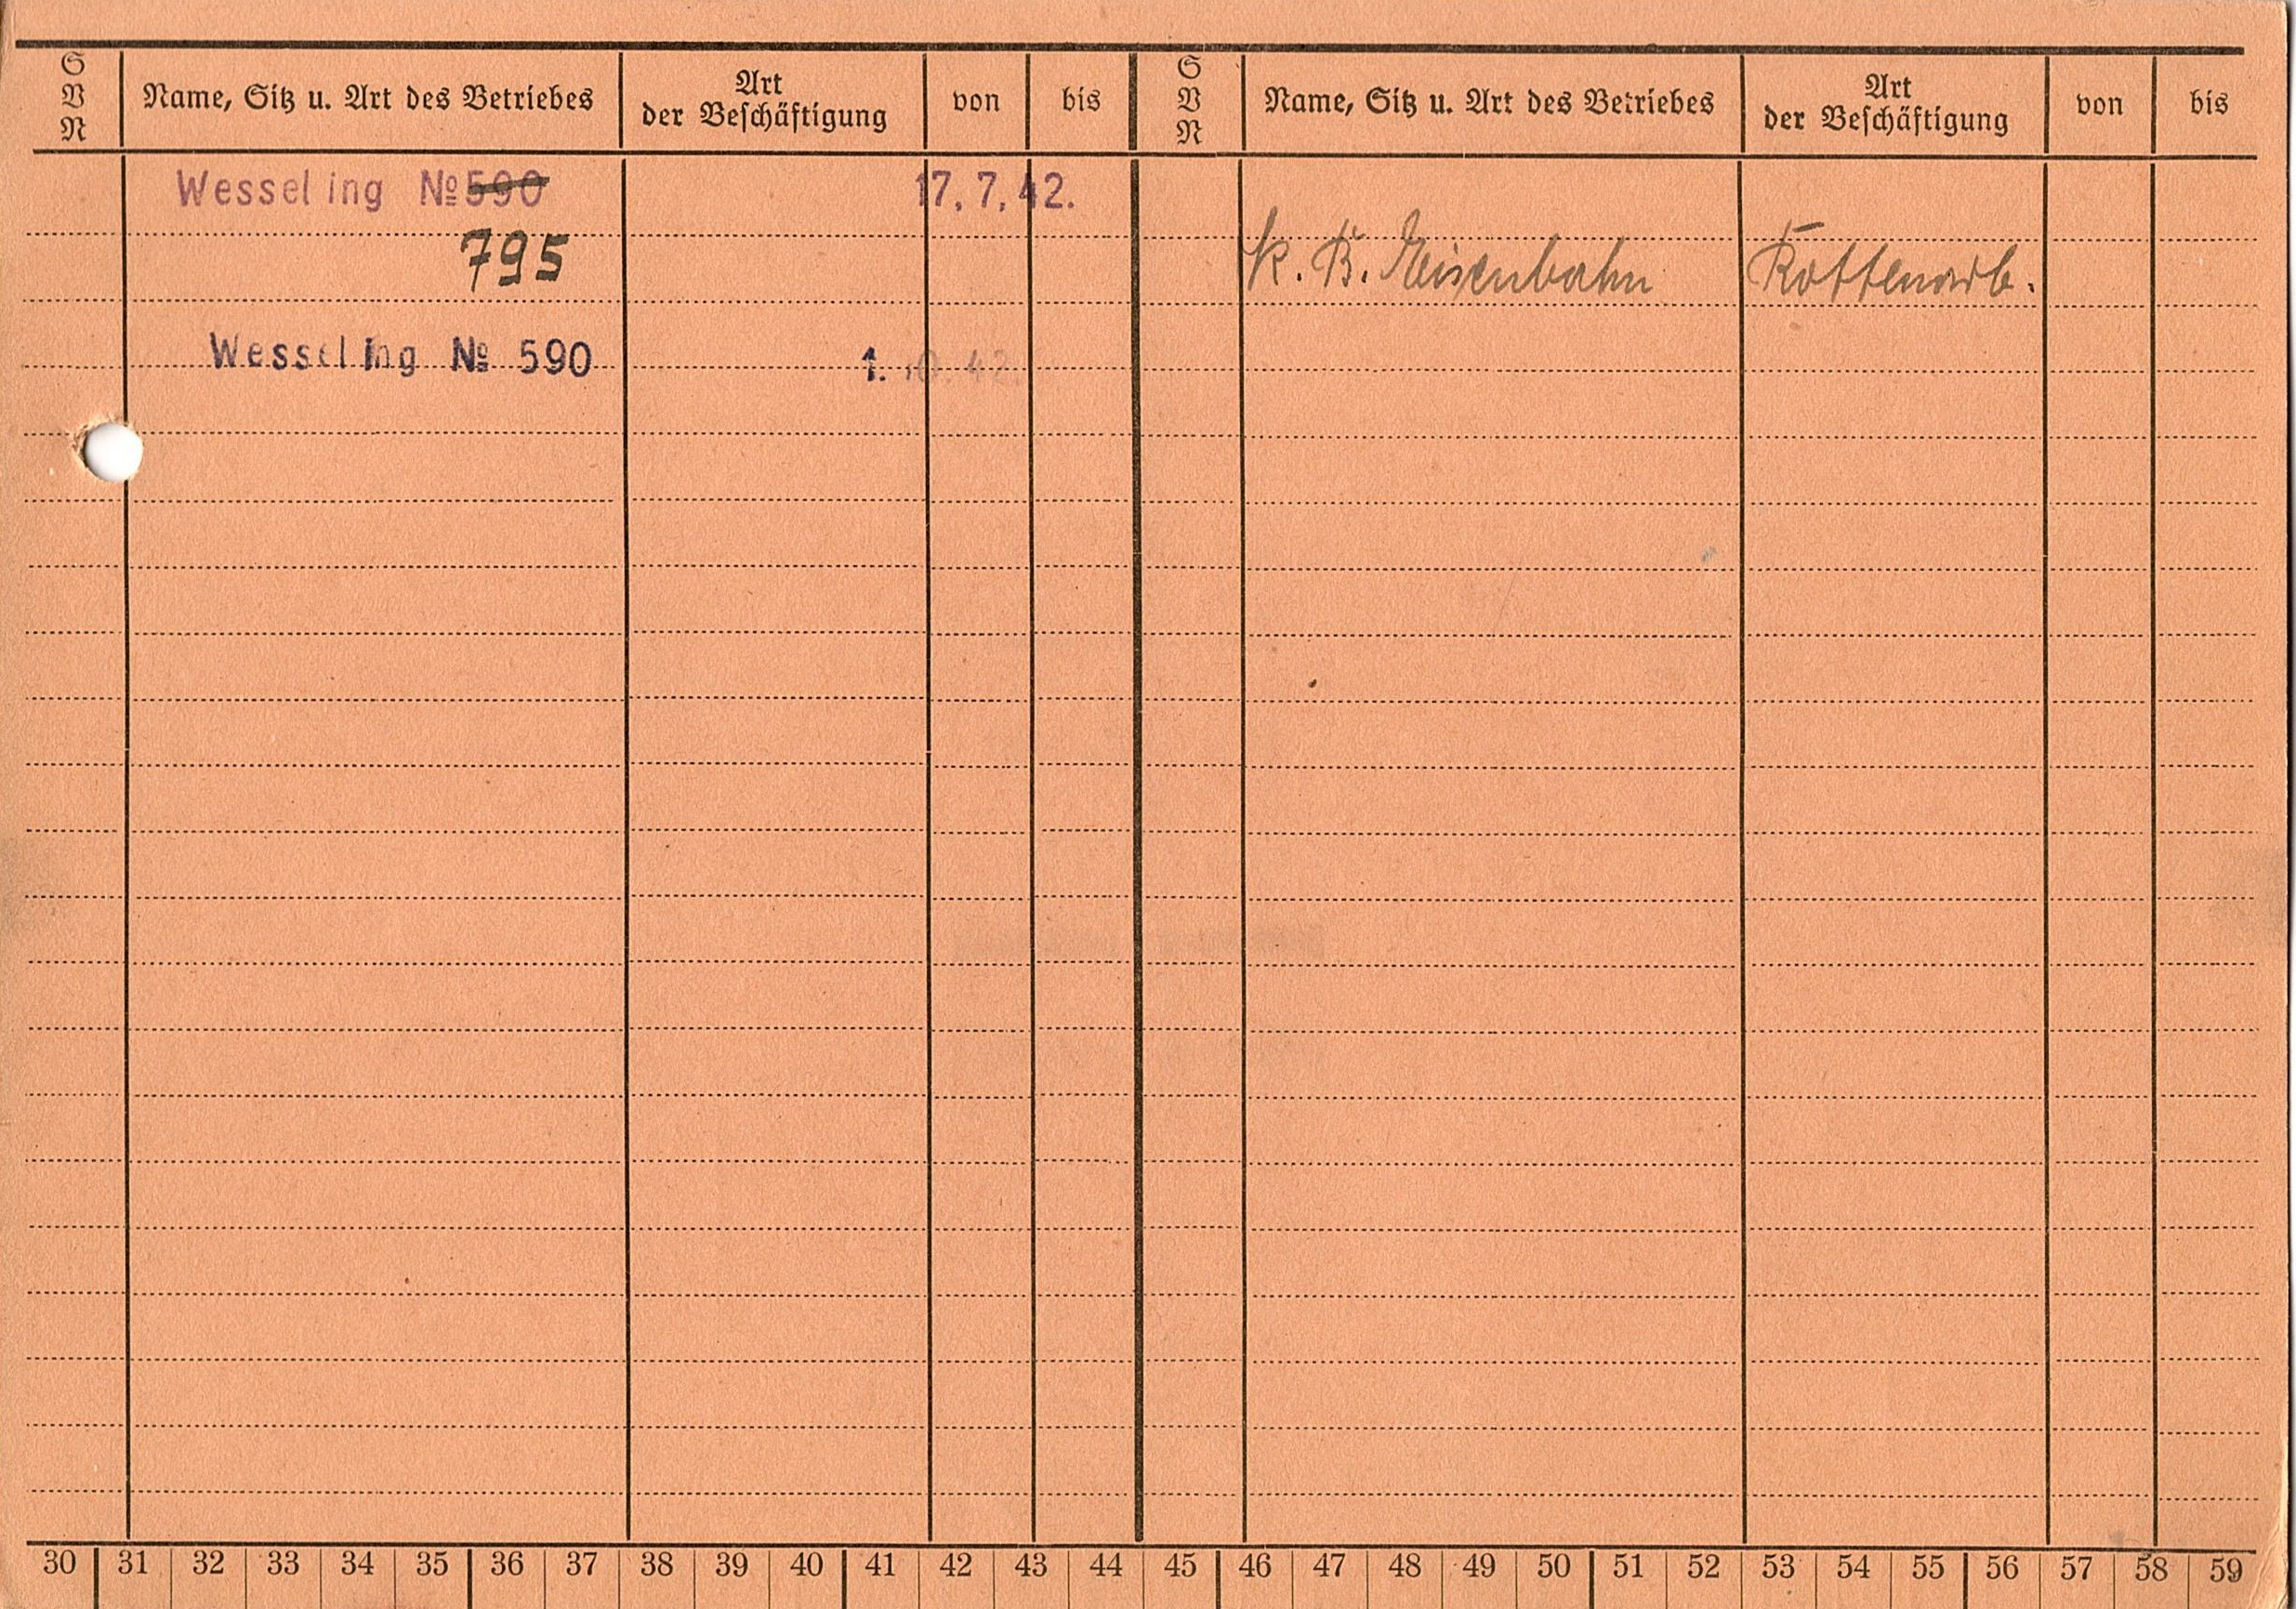 S
V
N
Name, Sitz u. Art des Betriebes
Art
der Beschäftigung
von
bis
S
V
N
Name, Sitz u. Art des Betriebes
Art
der Beschäftigung
von
bis
Wesseling № 590
17. 7. 42.
795
K. B. Eisenbahn
Rottenarb.
Wesseling № 590
1. 10. 42.
30 31 32 33 34 35 36 37 38 39 40 41 42 43 44 45 46 47 48 49 50 51 52 53 54 55 56 57 58 59